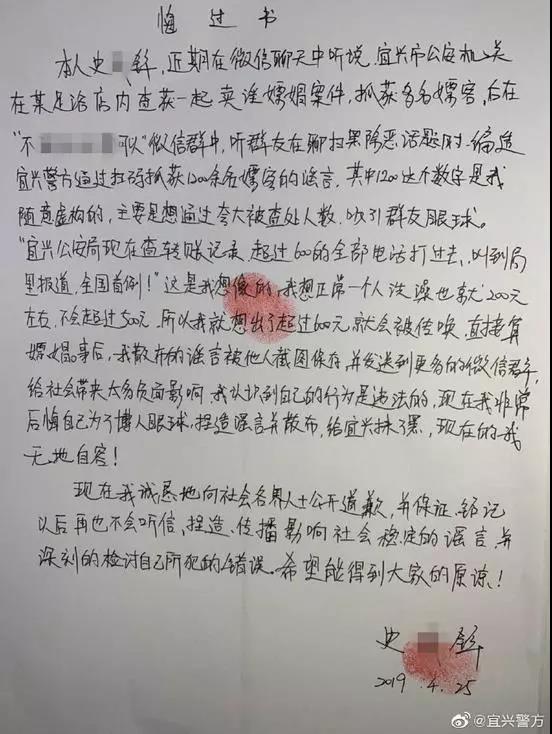 悔过书
本人史 辉，近期在微信聊天中听说，宜兴市公安机关
在某足浴店内查获一起卖淫嫖娼案件，抓获多名嫖客，后在
"不 可以"微信群中，听群友在聊扫黑除恶话题时，编造
宜兴警方通过扫码抓获1200余名嫖客的谣言，其中1200这个数字是我
随意虚构的，主要是想通过夸大被查处人数，吸引群友眼球。
"宜兴公安局现在查转账记录，超过600的全部电话打过去，叫到局
里报道，全国首例！"这是我想像的，我想正常一个人洗澡也就200元
左右，不会超过500元，所以我就想出了超过600元，就会被传唤，直接算
嫖娼，事后，我散布的谣言被他人截图保存，并发送到更多的微信群，
给社会带来太多负面影响，我认识到自己的行为是违法的，现在我非常
后悔自己为了博人眼球，捏造谣言并散布，给宜兴抹了黑，现在的我
无地自容！
现在我诚恳地向社会各界人士公开道歉，并保证，铭记
以后再也不会听信、捏造、传播影响社会稳定的谣言，并
深刻的检讨自己所犯的错误。希望能得到大家的原谅！
史 辉
2019.4.25
@宜兴警方